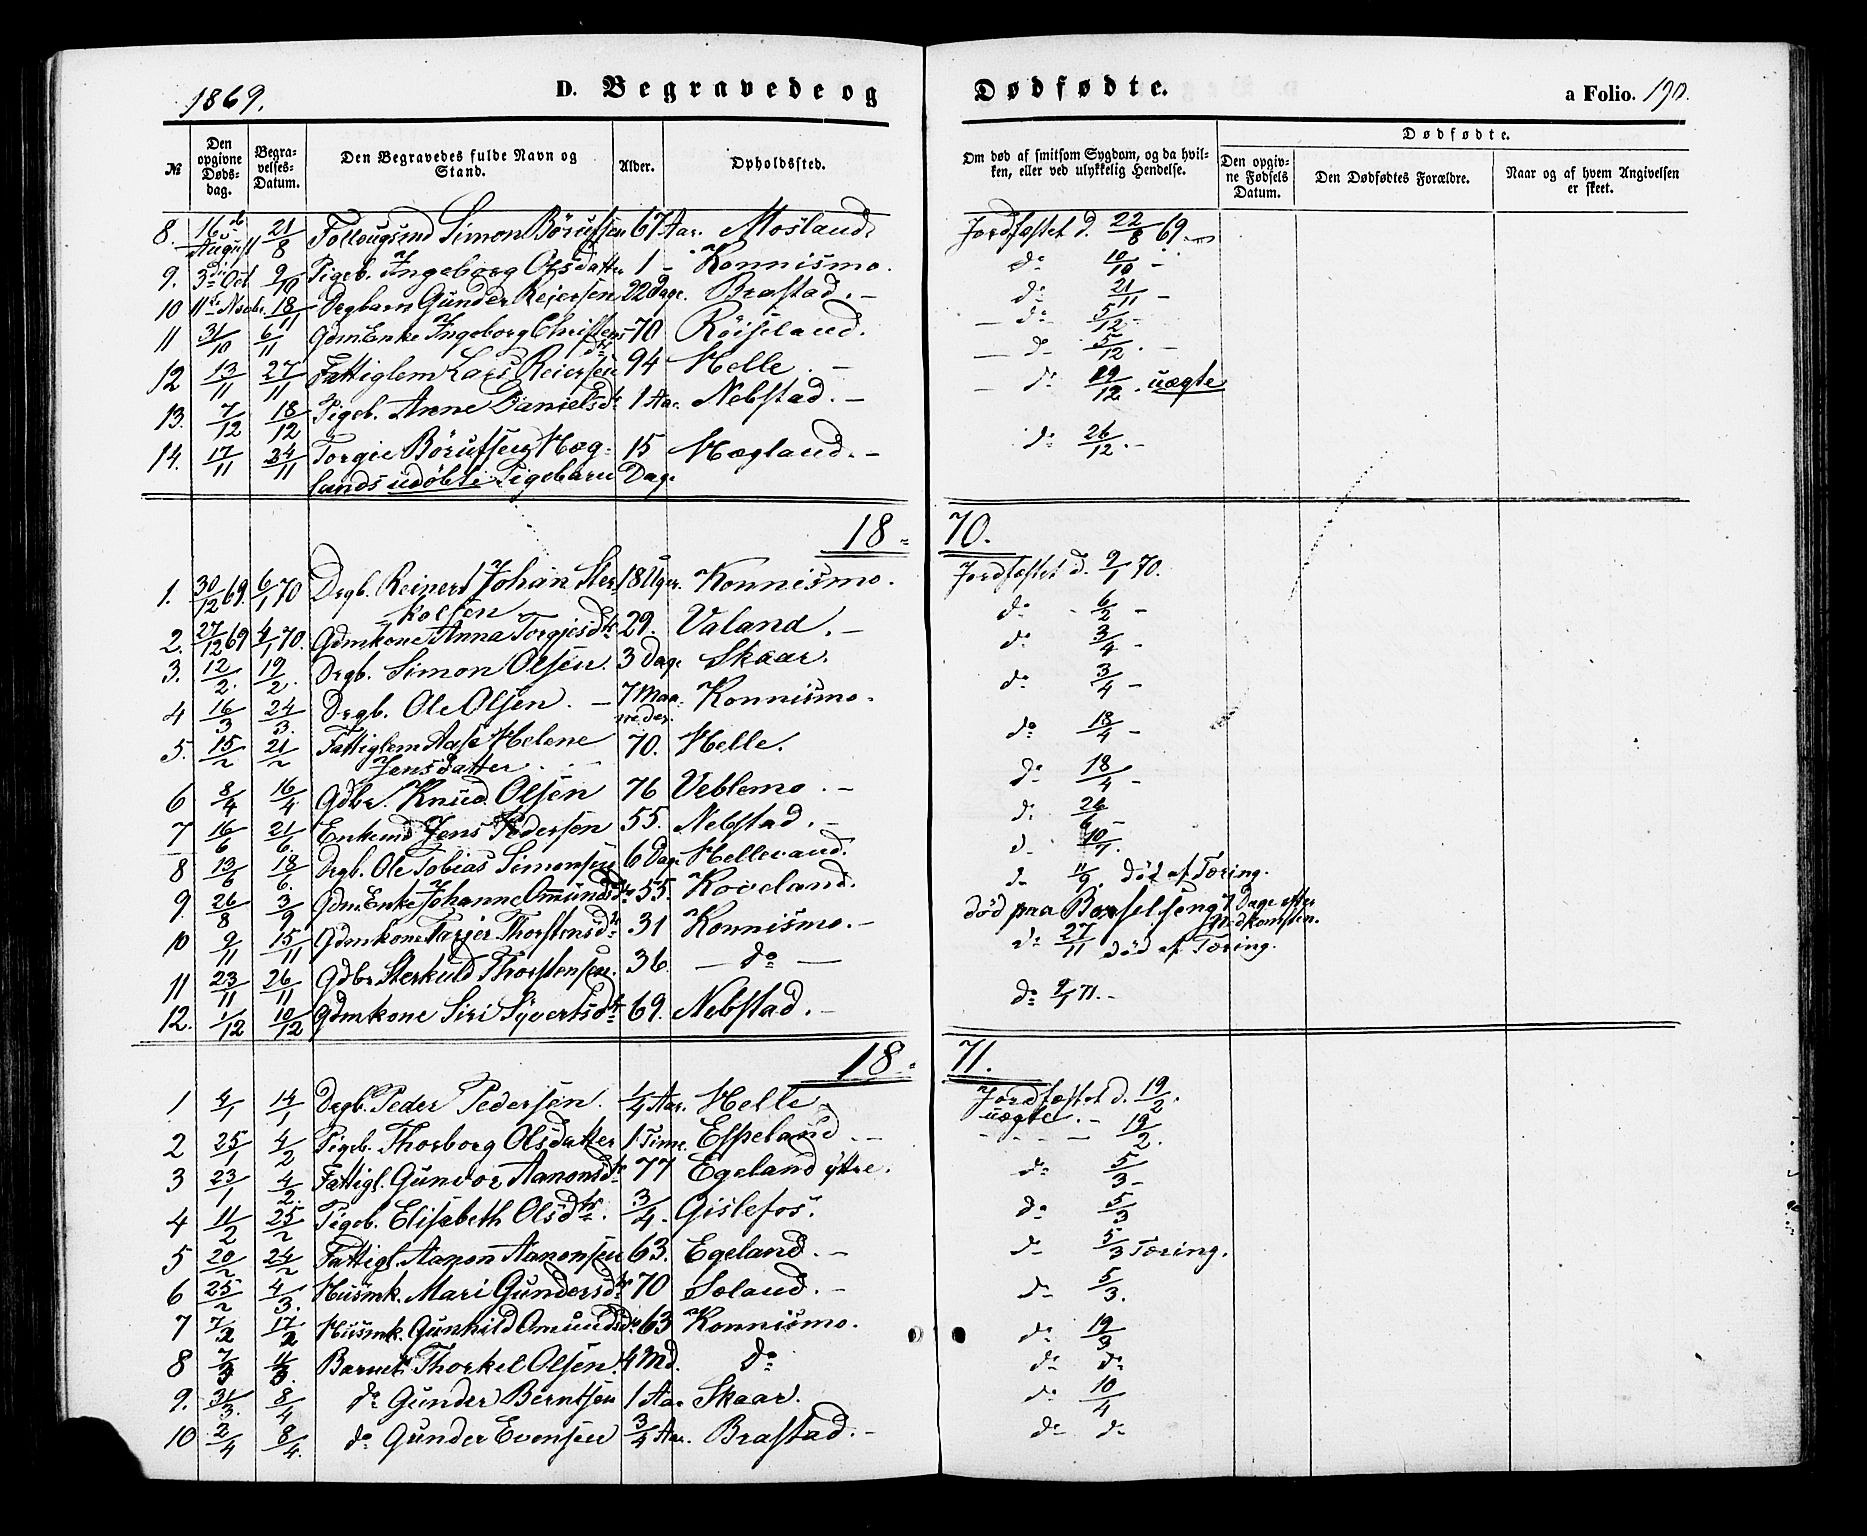 1869.
D. Begravede og
Dødfødte.
a Folio. 190.
№
Den opgivne Døds-dag.
Begra-velses-Datum.
Den Begravedes fulde Navn og Stand.
Alder.
Opholdssted.
Om død af smitsom Sygdom, og da hvil-ken, eller ved ulykkelig Hendelse.
Dødfødte.
Den opgiv-ne Fødsels Datum.
Den Dødfødtes Forældre.
Naar og af hvem Angivelsen er skeet.
8. 16 de August 21/8 Simon Börufsen 67 Aar. Mosland. Jordfæstet d. 22/8 69.
9. 3die Oct 9/10 Pigeb. Ingeborg Olsdatter 1 - Konnismo. do 10/10 -
10 11te Novbr. 18/11 Drgbarn Gunder Reiersen 22 Dage. Brastad. - do 21/11 -
11 31/10 6/11 Gdm. Enke Ingeborg Christensdtr 70 Röiseland. - do 5/12 -
12 13/11 27/11 Fattiglem Lars Reiersen 94 Helle. - - do 5/12. -
13. 7/12 18/12 Pigeb. Anne Danielsdtr 1 Aar. Nebstad. - - do 29/12. uægte
14. 17/11 24/11 Torgie Börufsen Hæg- 15 Hægland. - do 26/12. -
lands udøbte Pigebarn Dage
18 - 70.
1. 30/12 69. 6/1 70 Drgb. Reinert Johan Ster- 18 Uger. Konnismo. Jordfæstet d. 9/1 70.
kolsen
2. 27/12 69 4/1 70. Gdmkone Anna Torgjesdtr 29. Valand. - do - 6/2 -
3. 12/2. 19/2. Drgb. Simon Olsen. 3 Dage Skaar. do 3/4 -
4 16/3 24/3. Drgb. Ole Olsen. - 7 Maa- Konnismo. do 3/4 -
neder.
5. 15/2 21/2 Fattiglem Aase Helene 70. Helle. do 18/4 -
Jensdatter.
6 8/4 16/4 Gdbr. Knud Olsen 76 Veblemo. - do 18/4 -
7 16/6 21/6. Enkemd Jens Pedersen 55. Nebstad. - do 26/6 -
8 13/6 18/6. Drgb. Ole Tobias Simonsen 6 Dage Hellevand. do 10/7.
9 26/8 3/9 Gdm. Enke Johanne Omundsdtr 55. Koveland. do 11/9. död af Tæring.
10 9/11 15/11 Gdmkone Tarjer Thorstensdtr 31 Konnismo. - död paa Barselseng 7 Dage efter
Nedkomsten.
11 23/11 26/11 Gdbr Sterkuld Thorstensen. 36. - do - do 27/11 död af Tæring.
12. 1/12 10/12 Gdmkone Siri Syvertsdtr 69. Nebstad. - do 9/1 71. -
18 - 71.
1 4/1 14/1 Drgb. Peder Pedersen. 1/4 Aar. Helle. Jordfæstet d. 19/2.
2 25/1 4/2 Pigeb. Thorborg Olsdatter 1 Time Espeland. - - uægte. - 19/2.
3 23/1 4/2. Fattigl. Gunvor Aanonsdtr 77 Egeland ytre. do 5/3 -
4 11/2 25/2 Pigeb. Elisabeth Olsdtr. 3/4. Gislefos. do 5/3
5 20/2 24/2 Fattigl. Aanon Aanonsen 63. Egeland. - do 5/3 Tæring.
6 25/2 4/3. Husmk. Mari Gundersdtr 70 Soland. - do 5/3.
7 7/2 17/2 Husmk. Gunhild Omundsdtr 63 Konnismo. do 19/3
8 7/3 11/3. Barnet Thorkel Olsen 4 Md. do do do
9. 31/3. 8/4 do Gunder Berntsen 1 Aar Skaar. do 10/4
10 2/4 8/4. do Gunder Evensen 3/4 Aar. Brastad. - do do